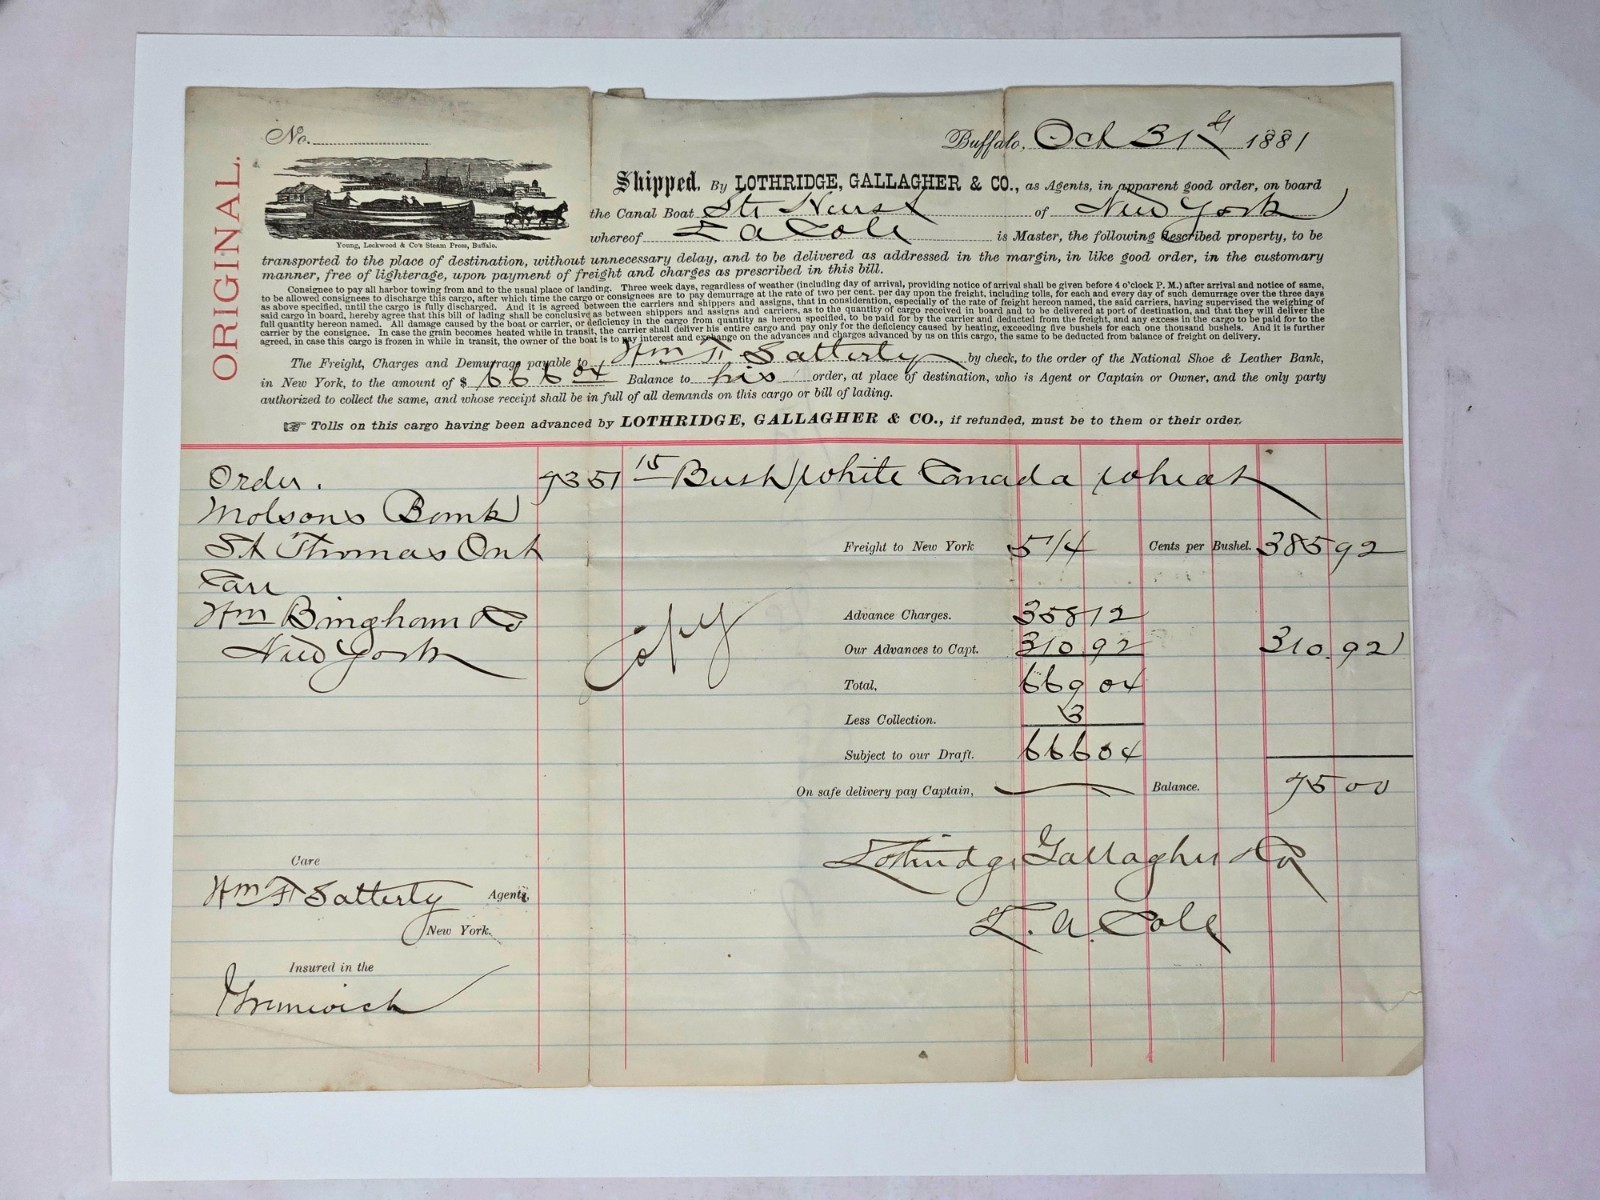 No.
Buffalo, Oct 31st 1881
ORIGINAL.
Young, Lockwood & Co's Steam Press, Buffalo.
Shipped, By LOTHRIDGE, GALLAGHER & CO., as Agents, in apparent good order, on board
the Canal Boat of New York
whereof L A Cole is Master, the following described property, to be
transported to the place of destination, without unnecessary delay, and to be delivered as addressed in the margin, in like good order, in the customary
manner, free of lighterage, upon payment of freight and charges as prescribed in this bill.
Consignee to pay all harbor towing from and to the usual place of landing. Three week days, regardless of weather (including day of arrival, providing notice of arrival shall be given before 4 o'clock P. M.) after arrival and notice of same,
to be allowed consignees to discharge this cargo, after which time the cargo or consignees are to pay demurrage at the rate of two per cent. per day upon the freight, including tolls, for each and every day of such demurrage over the three days
as above specified, until the cargo is fully discharged. And it is agreed between the carriers and shippers and assigns, that in consideration, especially of the rate of freight hereon named, the said carriers, having supervised the weighing of
said cargo in board, hereby agree that this bill of lading shall be conclusive as between shippers and assigns and carriers, as to the quantity of cargo received in board and to be delivered at port of destination, and that they will deliver the
full quantity hereon named. All damage caused by the boat or carrier, or deficiency in the cargo from quantity as hereon specified, to be paid for by the carrier and deducted from the freight, and any excess in the cargo to be paid for to the
carrier by the consignee. In case the grain becomes heated while in transit, the carrier shall deliver his entire cargo and pay only for the deficiency caused by heating, exceeding five bushels for each one thousand bushels. And it is further
agreed, in case this cargo is frozen in while in transit, the owner of the boat is to pay interest and exchange on the advances and charges advanced by us on this cargo, the same to be deducted from balance of freight on delivery.
The Freight, Charges and Demurrage payable to Wm F. Satterly by check, to the order of the National Shoe & Leather Bank,
in New York, to the amount of $ 666 04 Balance to his order, at place of destination, who is Agent or Captain or Owner, and the only party
authorized to collect the same, and whose receipt shall be in full of all demands on this cargo or bill of lading.
☞ Tolls on this cargo having been advanced by LOTHRIDGE, GALLAGHER & CO., if refunded, must be to them or their order.
Order. 7351 15 Bush White Canada Wheat
Molsons Bank
St Thomas Ont
Freight to New York 5 1/4 Cents per Bushel. 385 92
Care
Wm Bingham & Co
New York
Copy
Advance Charges. 358 12
Our Advances to Capt. 310.92 310.92
Total, 669 04
Less Collection. 3
Subject to our Draft. 666 04
On safe delivery pay Captain, Balance. 75 00
Lothridge, Gallagher & Co
L. A. Cole
Care
Wm F. Satterly Agents,
New York.
Insured in the
Greenwich